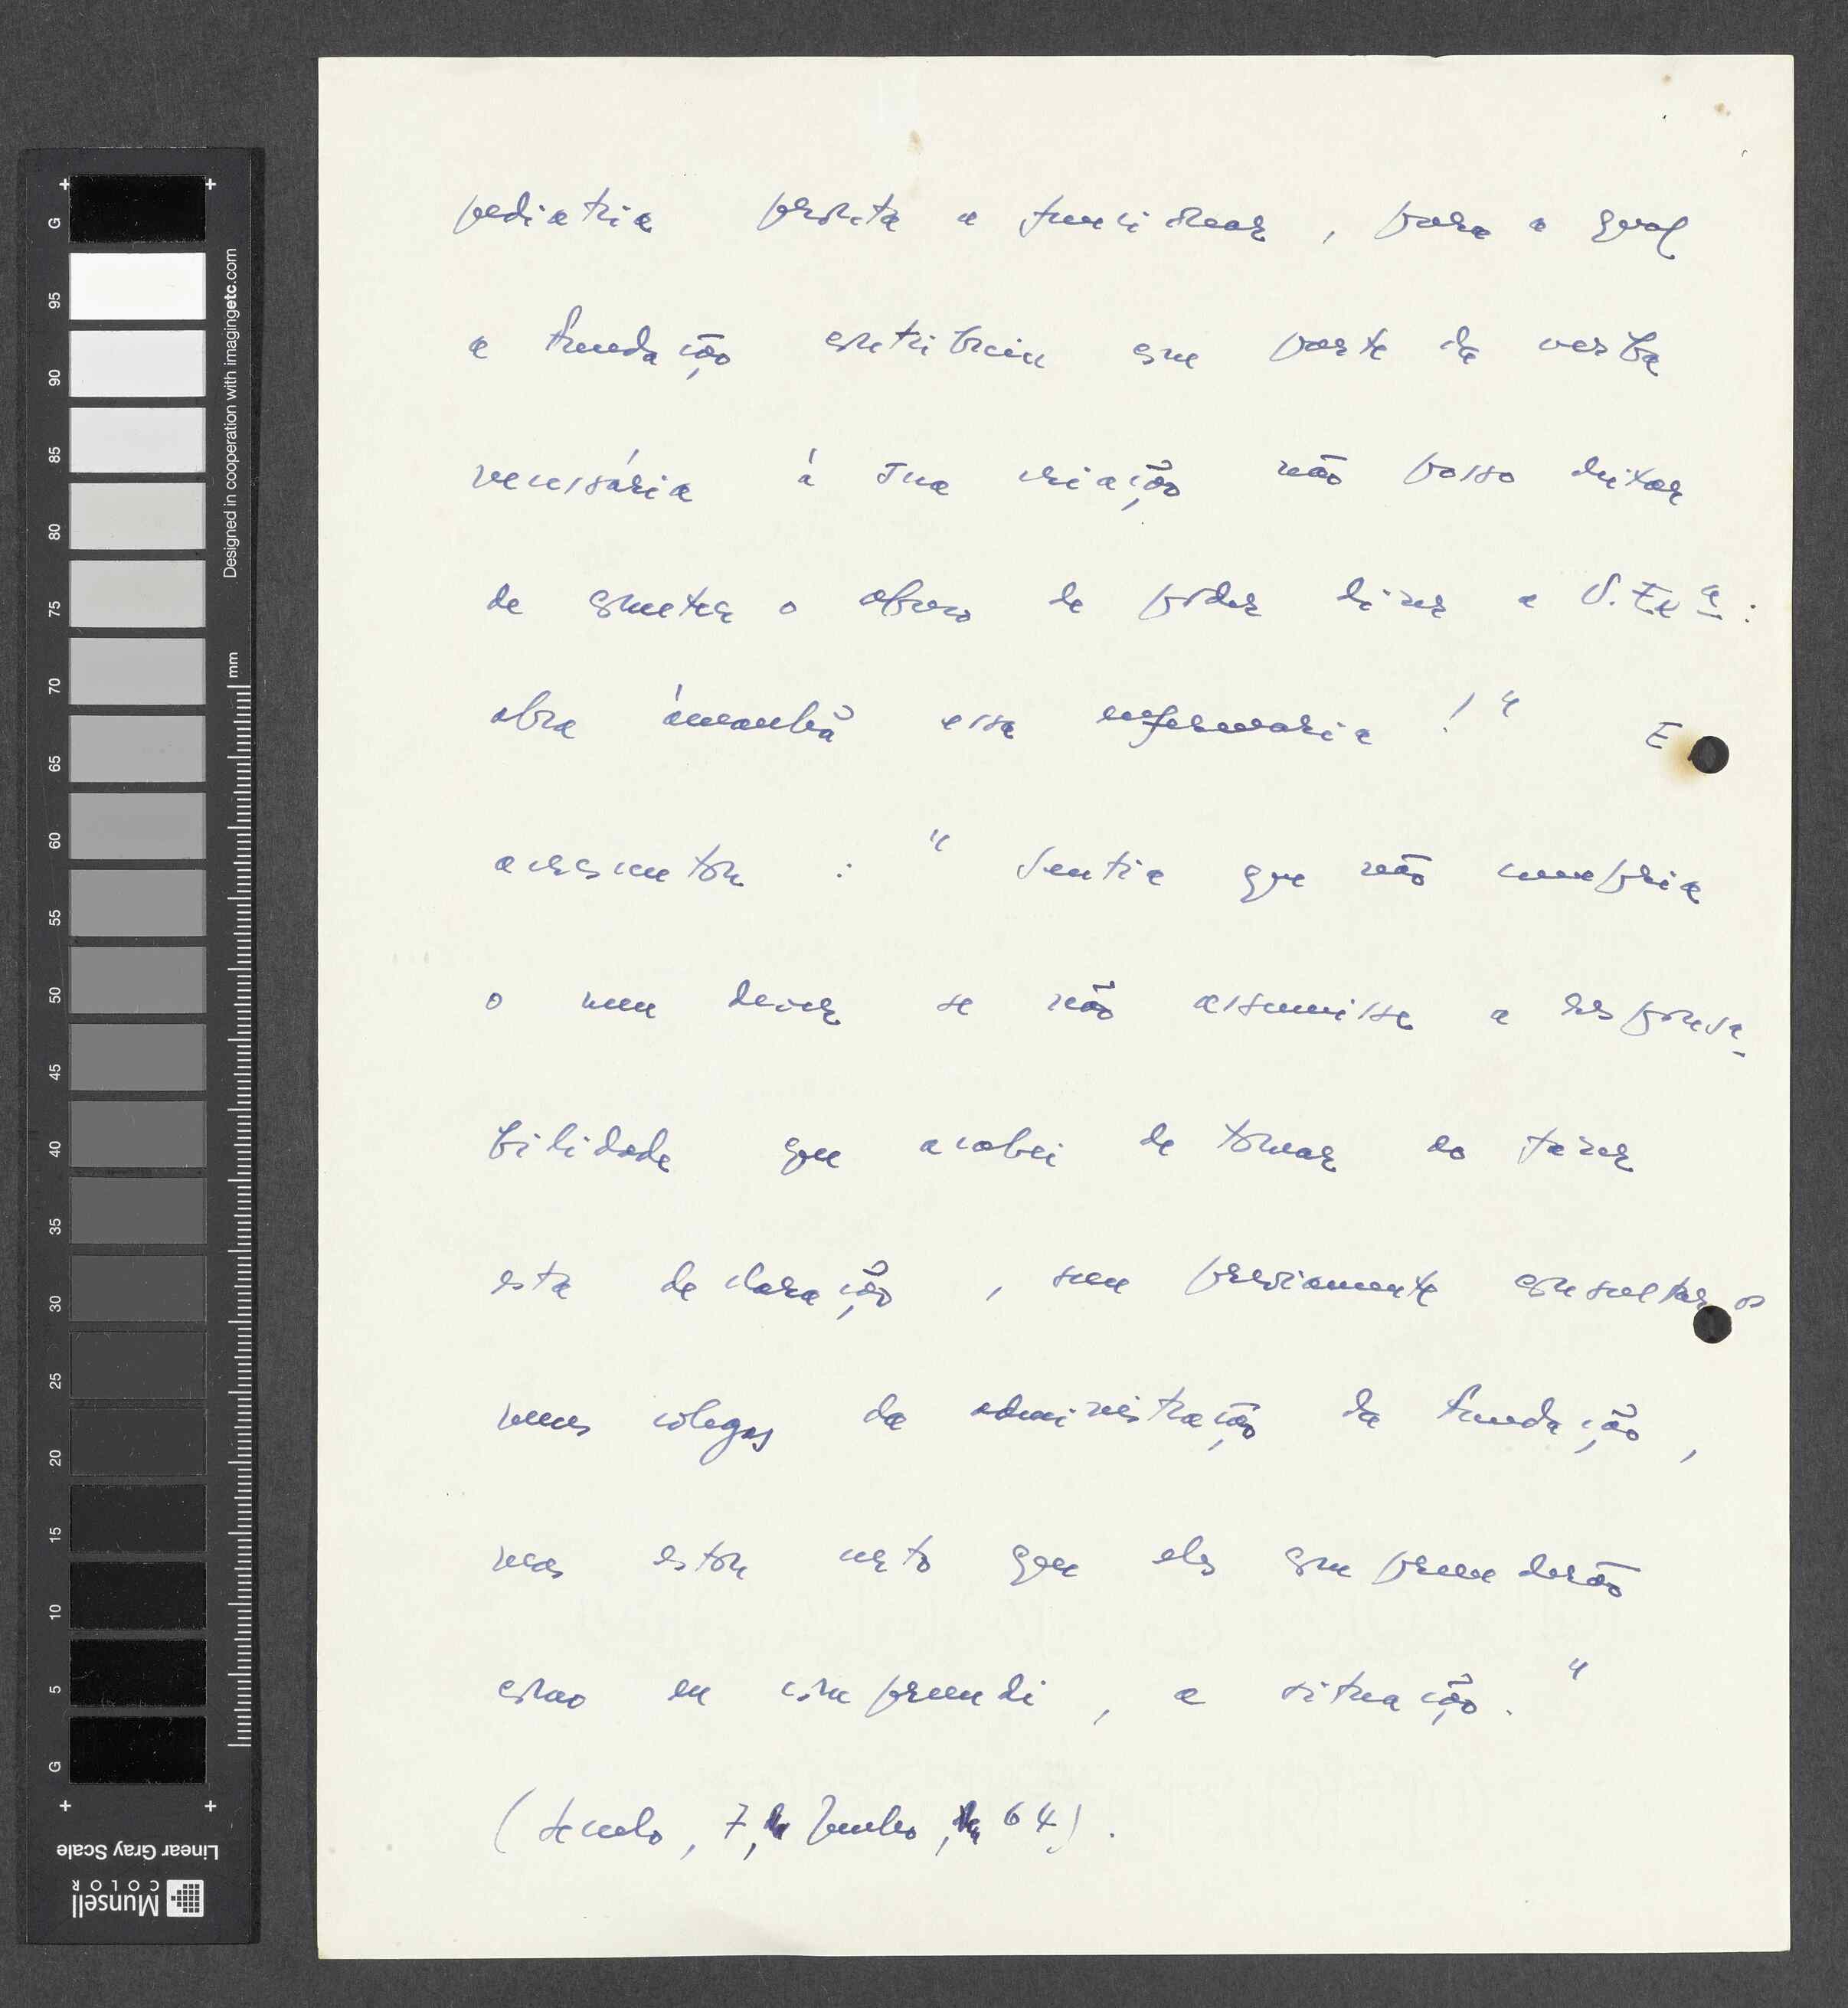 pediatria pronta a funcionar, para a qual
a Fundação contribuiu com parte da verba
necessária à sua criação não posso deixar
de cometer o abuso de poder dizer a V. Exª:
abra àmanhã essa enfermaria!" E
acrescentou: "Sentia que não cumpria
o meu dever se não assumisse a responsa-
bilidade que acabei de tomar ao fazer
esta declaração, sem previamente consultar os
meus colegas da administração da Fundação,
mas estou certo que eles compreenderão
como eu compreendi, a situação."
(Século, 7, Junho, 64).
G
95
90
85
80
75
70
65
60
55
50
45
40
35
30
25
20
15
10
5
G
Designed in cooperation with imagingetc.com
mm
Linear Gray Scale
Munsell
COLOR